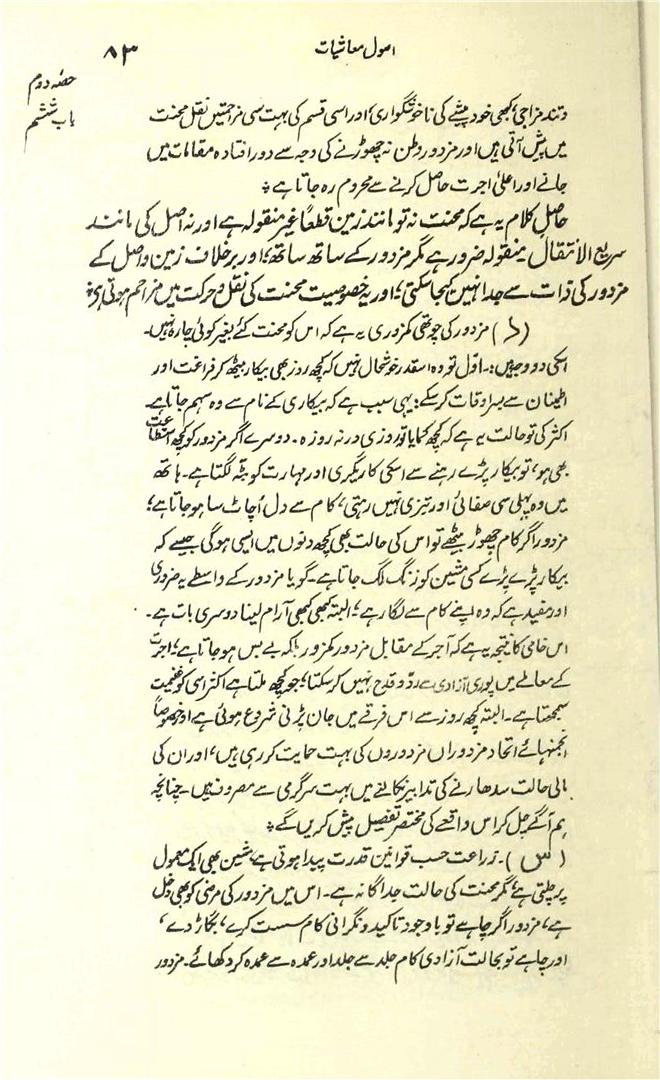 اصول معاشیات ۸۳
حصّہ دوم
باب ششم
و تند مزاجی، کبھی خود پیشے کی ناخوشگواری، اور اسی قسم کی بہت سی مزاحمتیں نقل محنت
میں پیش آتی ہیں اور مزدور وطن نہ چھوڑنے کی وجہ سے دور افتادہ مقامات میں
جانے اور اعلیٰ اجرت حاصل کرنے سے محروم رہ جاتا ہے؛
حاصل کلام یہ ہے کہ محنت نہ تو مانند زمین قطعاً غیر منقولہ ہے اور نہ اصل کی مانند
سریع الانتقال۔ منقولہ ضرور ہے مگر مزدور کے ساتھ ساتھ، اور برخلاف زمین و اصل کے
مزدور کی ذات سے جدا نہیں کیجا سکتی، اور یہ خصوصیت محنت کی نقل و حرکت میں مزاحم ہوتی ہے؛
(د) مزدور کی چوتھی کمزوری یہ ہے کہ اس کو محنت کئے بغیر کوئی چارہ نہیں۔
اسکی دو وجہیں:۔ اوّل تو وہ اسقدر خوشحال نہیں کہ کچھ روز بھی بیکار بیٹھ کر فراغت اور
اطمینان سے بسر اوقات کر سکے؛ یہی سبب ہے کہ بیکاری کے نام سے وہ سہم جاتا ہے۔
اکثر کی تو حالت یہ ہے کہ کچھ کمایا تو روزی ورنہ روزہ۔ دوسرے اگر مزدور کو کچھ استطاعت
بھی ہو، تو بیکار پڑے رہنے سے اسکی کاریگری اور مہارت کو بٹّہ لگتا ہے۔ ہاتھ
میں وہ پہلی سی صفائی اور تیزی نہیں رہتی، کام سے دل اُچاٹ سا ہو جاتا ہے؛
مزدور اگر کام چھوڑ بیٹھے تو اس کی حالت بھی کچھ دنوں میں ایسی ہوگی جیسے کہ
بیکار پڑے پڑے کسی مشین کو زنگ لگ جاتا ہے۔ گویا مزدور کے واسطے یہ ضروری
اور مفید ہے کہ وہ اپنے کام سے لگا رہے؛ البتہ کبھی کبھی آرام لینا دوسری بات ہے۔
اس خامی کا نتیجہ یہ ہے کہ آجر کے مقابل مزدور کمزور بلکہ بے بس ہو جاتا ہے؛ اجرت
کے معاملے میں پوری آزادی سے ردّ و قدح نہیں کر سکتا؛ جو کچھ ملتا ہے اکثر اسی کو غنیمت
سمجھتا ہے۔ البتہ کچھ روز سے اس فرقے میں جان پڑنی شروع ہوئی ہے اور خصوصاً
انجمنہائے اتحاد مزدوراں مزدوروں کی بہت حمایت کر رہی ہیں، اور ان کی
مالی حالت سدھارنے کی تدابیر نکالنے میں بہت سرگرمی سے مصروف ہیں۔ چنانچہ
ہم آگے چل کر اس واقعے کی مختصر تفصیل پیش کریں گے؛
(س)۔ زراعت حسب قوانین قدرت پیدا ہوتی ہے، مشین بھی ایک معمول
پر چلتی ہے، مگر محنت کی حالت جداگانہ ہے۔ اس میں مزدور کی مرضی کو بھی دخل
ہے، مزدور اگر چاہے تو باوجود تاکید و نگرانی کام سست کرے، بگاڑ دے،
اور چاہے تو بحالت آزادی کام جلد سے جلد اور عمدہ سے عمدہ کر دکھائے۔ مزدور